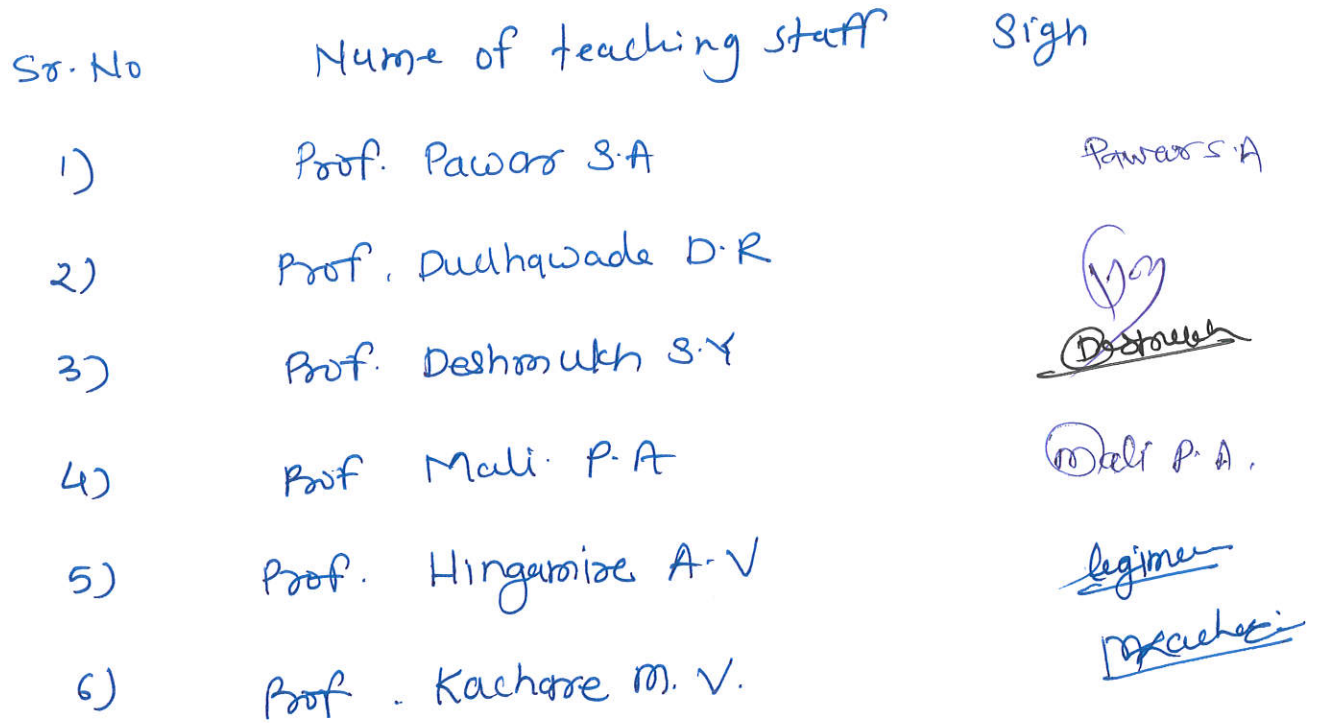 Sr. No Name of teaching staff Sign
1) Prof. Pawar S.A Pawar S.A
2) Prof. Dudhawade D.R
3) Prof. Deshmukh S.Y Deshmukh
4) Prof Mali. P.A Mali P.A.
5) Prof. Hingamire A.V
6) Prof. Kachare M.V. MKachare